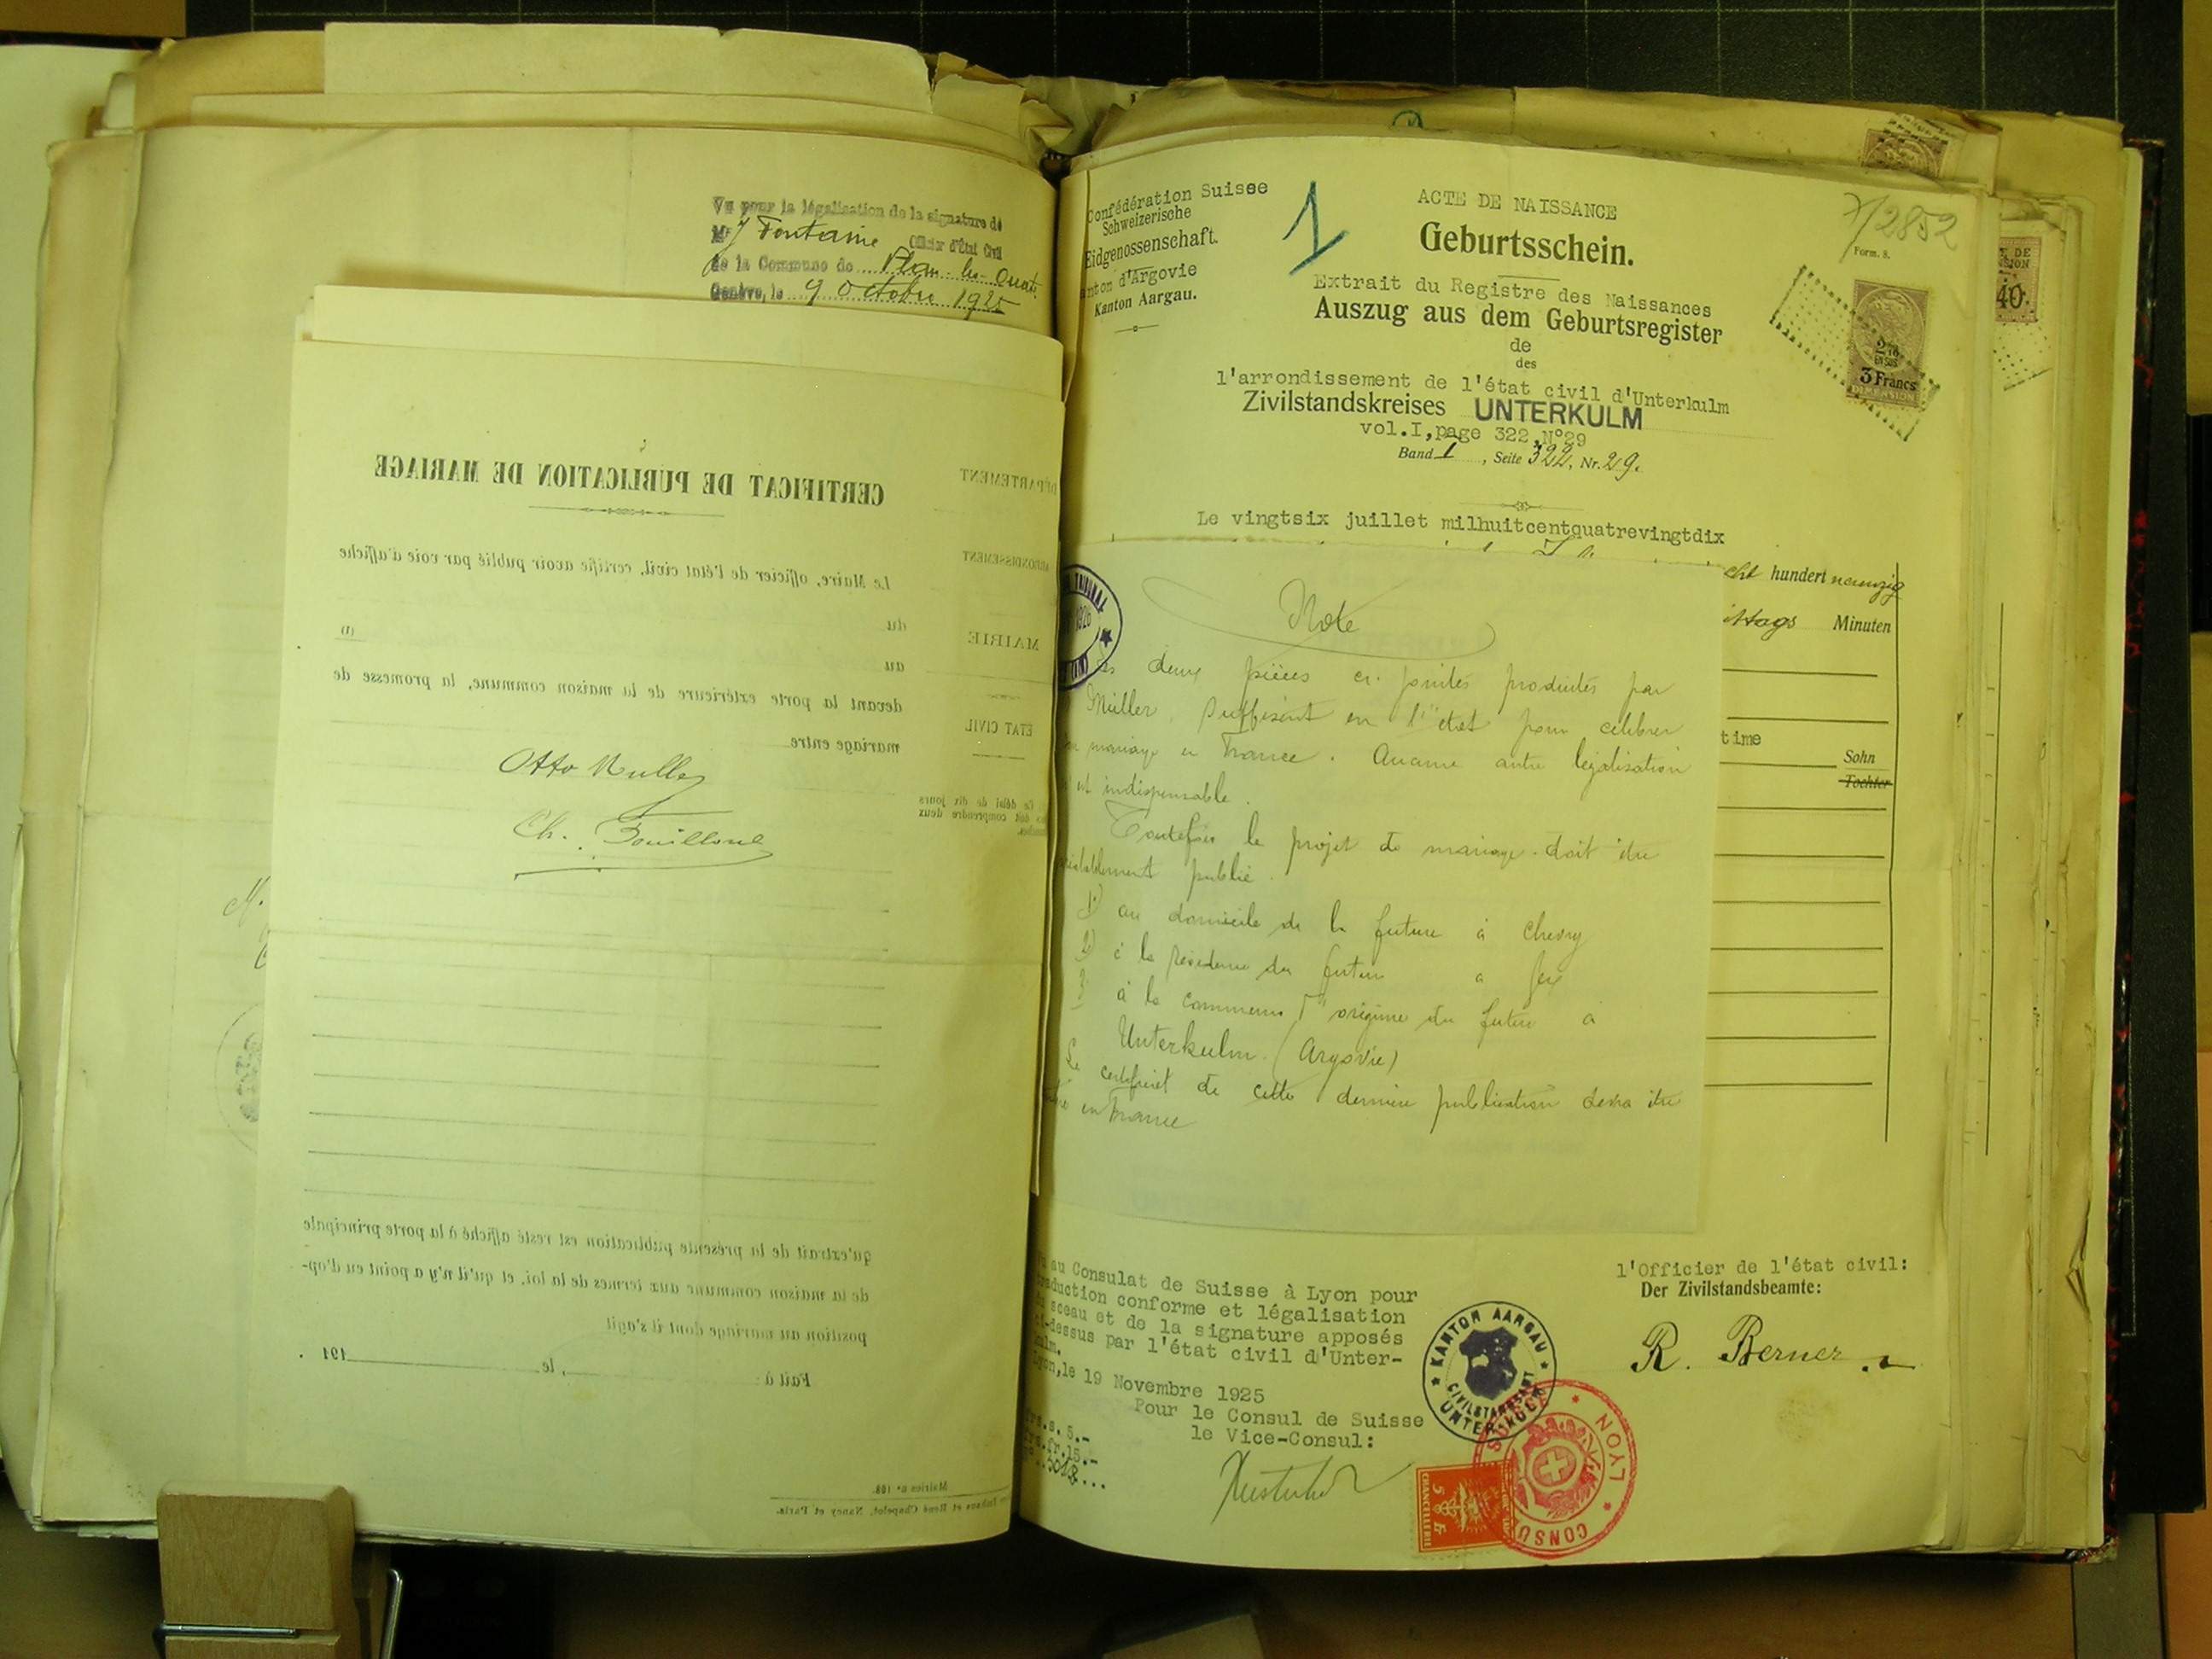 Vu pour la légalisation de la signature de
Mr J Fontaine Officier d'État Civil
de la Commune de Plan-les-Ouates
Genève, le 9 octobre 1925
CERTIFICAT DE PUBLICATION DE MARIAGE
DÉPARTEMENT
ARRONDISSEMENT
MAIRIE
ÉTAT CIVIL
Le Maire, officier de l'état civil, certifie avoir publié par voie d'affiche
du
au (1)
devant la porte extérieure de la maison commune, la promesse de
mariage entre
Otto Muller
Ch.
Ce délai de dix jours
doit comprendre deux
qu'extrait de la présente publication est resté affiché à la porte principale
de la maison commune aux termes de la loi, et qu'il n'y a point eu d'op-
position au mariage dont il s'agit
Fait à , le 191 .
Mairies n° 108.
et René Chapelot, Nancy et Paris.
Confédération Suisse
Schweizerische
Eidgenossenschaft.
d'Argovie
Kanton Aargau.
1
ACTE DE NAISSANCE
Geburtsschein.
7/2852
Form. 8.
Extrait du Registre des Naissances
Auszug aus dem Geburtsregister
de
des
l'arrondissement de l'état civil d'Unterkulm
Zivilstandskreises UNTERKULM
vol.I,page 322,N°29
Band I, Seite 322, Nr. 29.
EN SUS
3 Francs
40
Le vingtsix juillet milhuitcentquatrevingtdix
hundert neunzig
Minuten
Sohn
Tochter
Note
deux pièces ci-jointes produites par
Müller, suffisent en l'état pour célébrer
mariage en France. Aucune autre légalisation
est indispensable.
Toutefois le projet de mariage doit être
publié.
1) au domicile de la future à Chevry
2) à la résidence du futur à Gex
3) à la commune d'origine du futur à
Unterkulm (Argovie)
Le certificat de cette dernière publication devra être
en France
au Consulat de Suisse à Lyon pour
traduction conforme et légalisation
du sceau et de la signature apposés
ci-dessus par l'état civil d'Unter-
kulm.
Lyon,le 19 Novembre 1925
Pour le Consul de Suisse
le Vice-Consul:
frs.s. 5.-
frs.fr.15.-
l'Officier de l'état civil:
Der Zivilstandsbeamte:
R. Berner
KANTON AARGAU
CIVILSTANDSAMT
UNTER-KULM
LYON
CONSU
5 Fr.
CHANCELLERIE